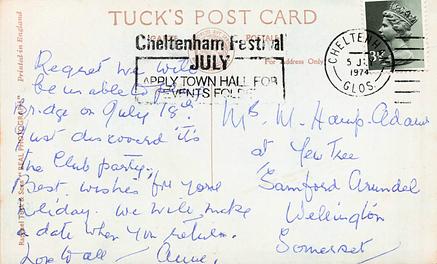 TUCK'S POST CARD
Printed in England
CARTE POSTALE
For Address Only
Cheltenham Festival
JULY
APPLY TOWN HALL FOR
EVENTS FOLDER
CHELTENHAM
5 J
1974
GLOS.
Raphael Tuck & Sons "REAL PHOTOGRAPH"
Regret we will
be unable to
ridge on July 18th.
Just discovered it's
the Club party.
Best wishes for your
holiday. We will make
a date when you return.
Love to all — Anne.
Mrs. M. Hamp-Adams
at Yew Tree
Samford Arundel
Wellington
Somerset